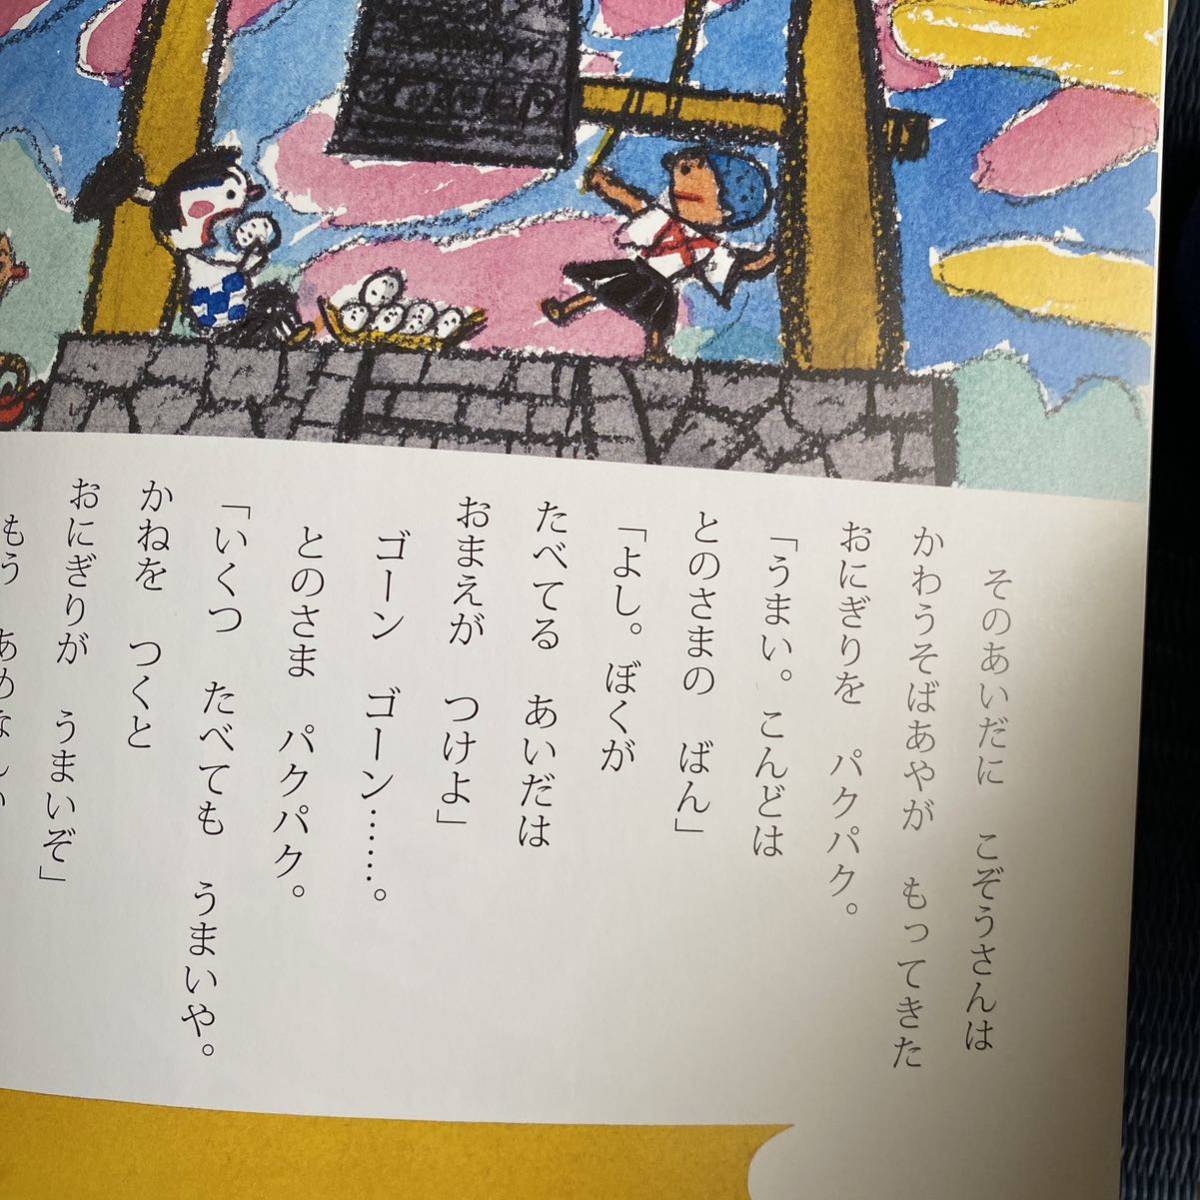 そのあいだに　こぞうさんは
かわうそばあやが　もってきた
おにぎりを　パクパク。
「うまい。こんどは
とのさまの　ばん」
「よし。ぼくが
たべてる　あいだは
おまえが　つけよ」
ゴーン　ゴーン……。
とのさま　パクパク。
「いくつ　たべても　うまいや。
かねを　つくと
おにぎりが　うまいぞ」
もう